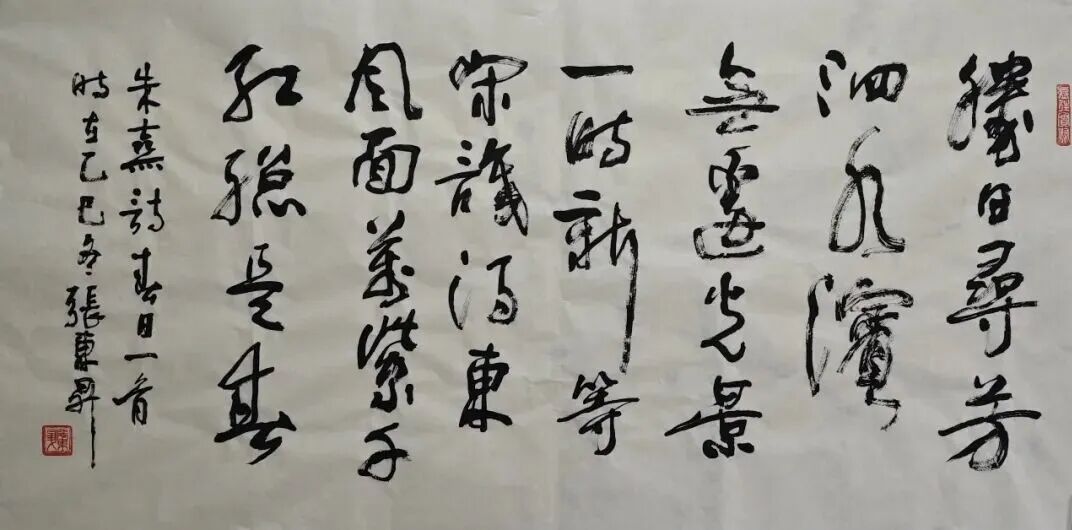 勝日尋芳
泗水濱
無邊光景
一時新等
閑識得東
風面萬紫千
紅總是春
朱熹詩春日一首
時在乙巳冬張東昇